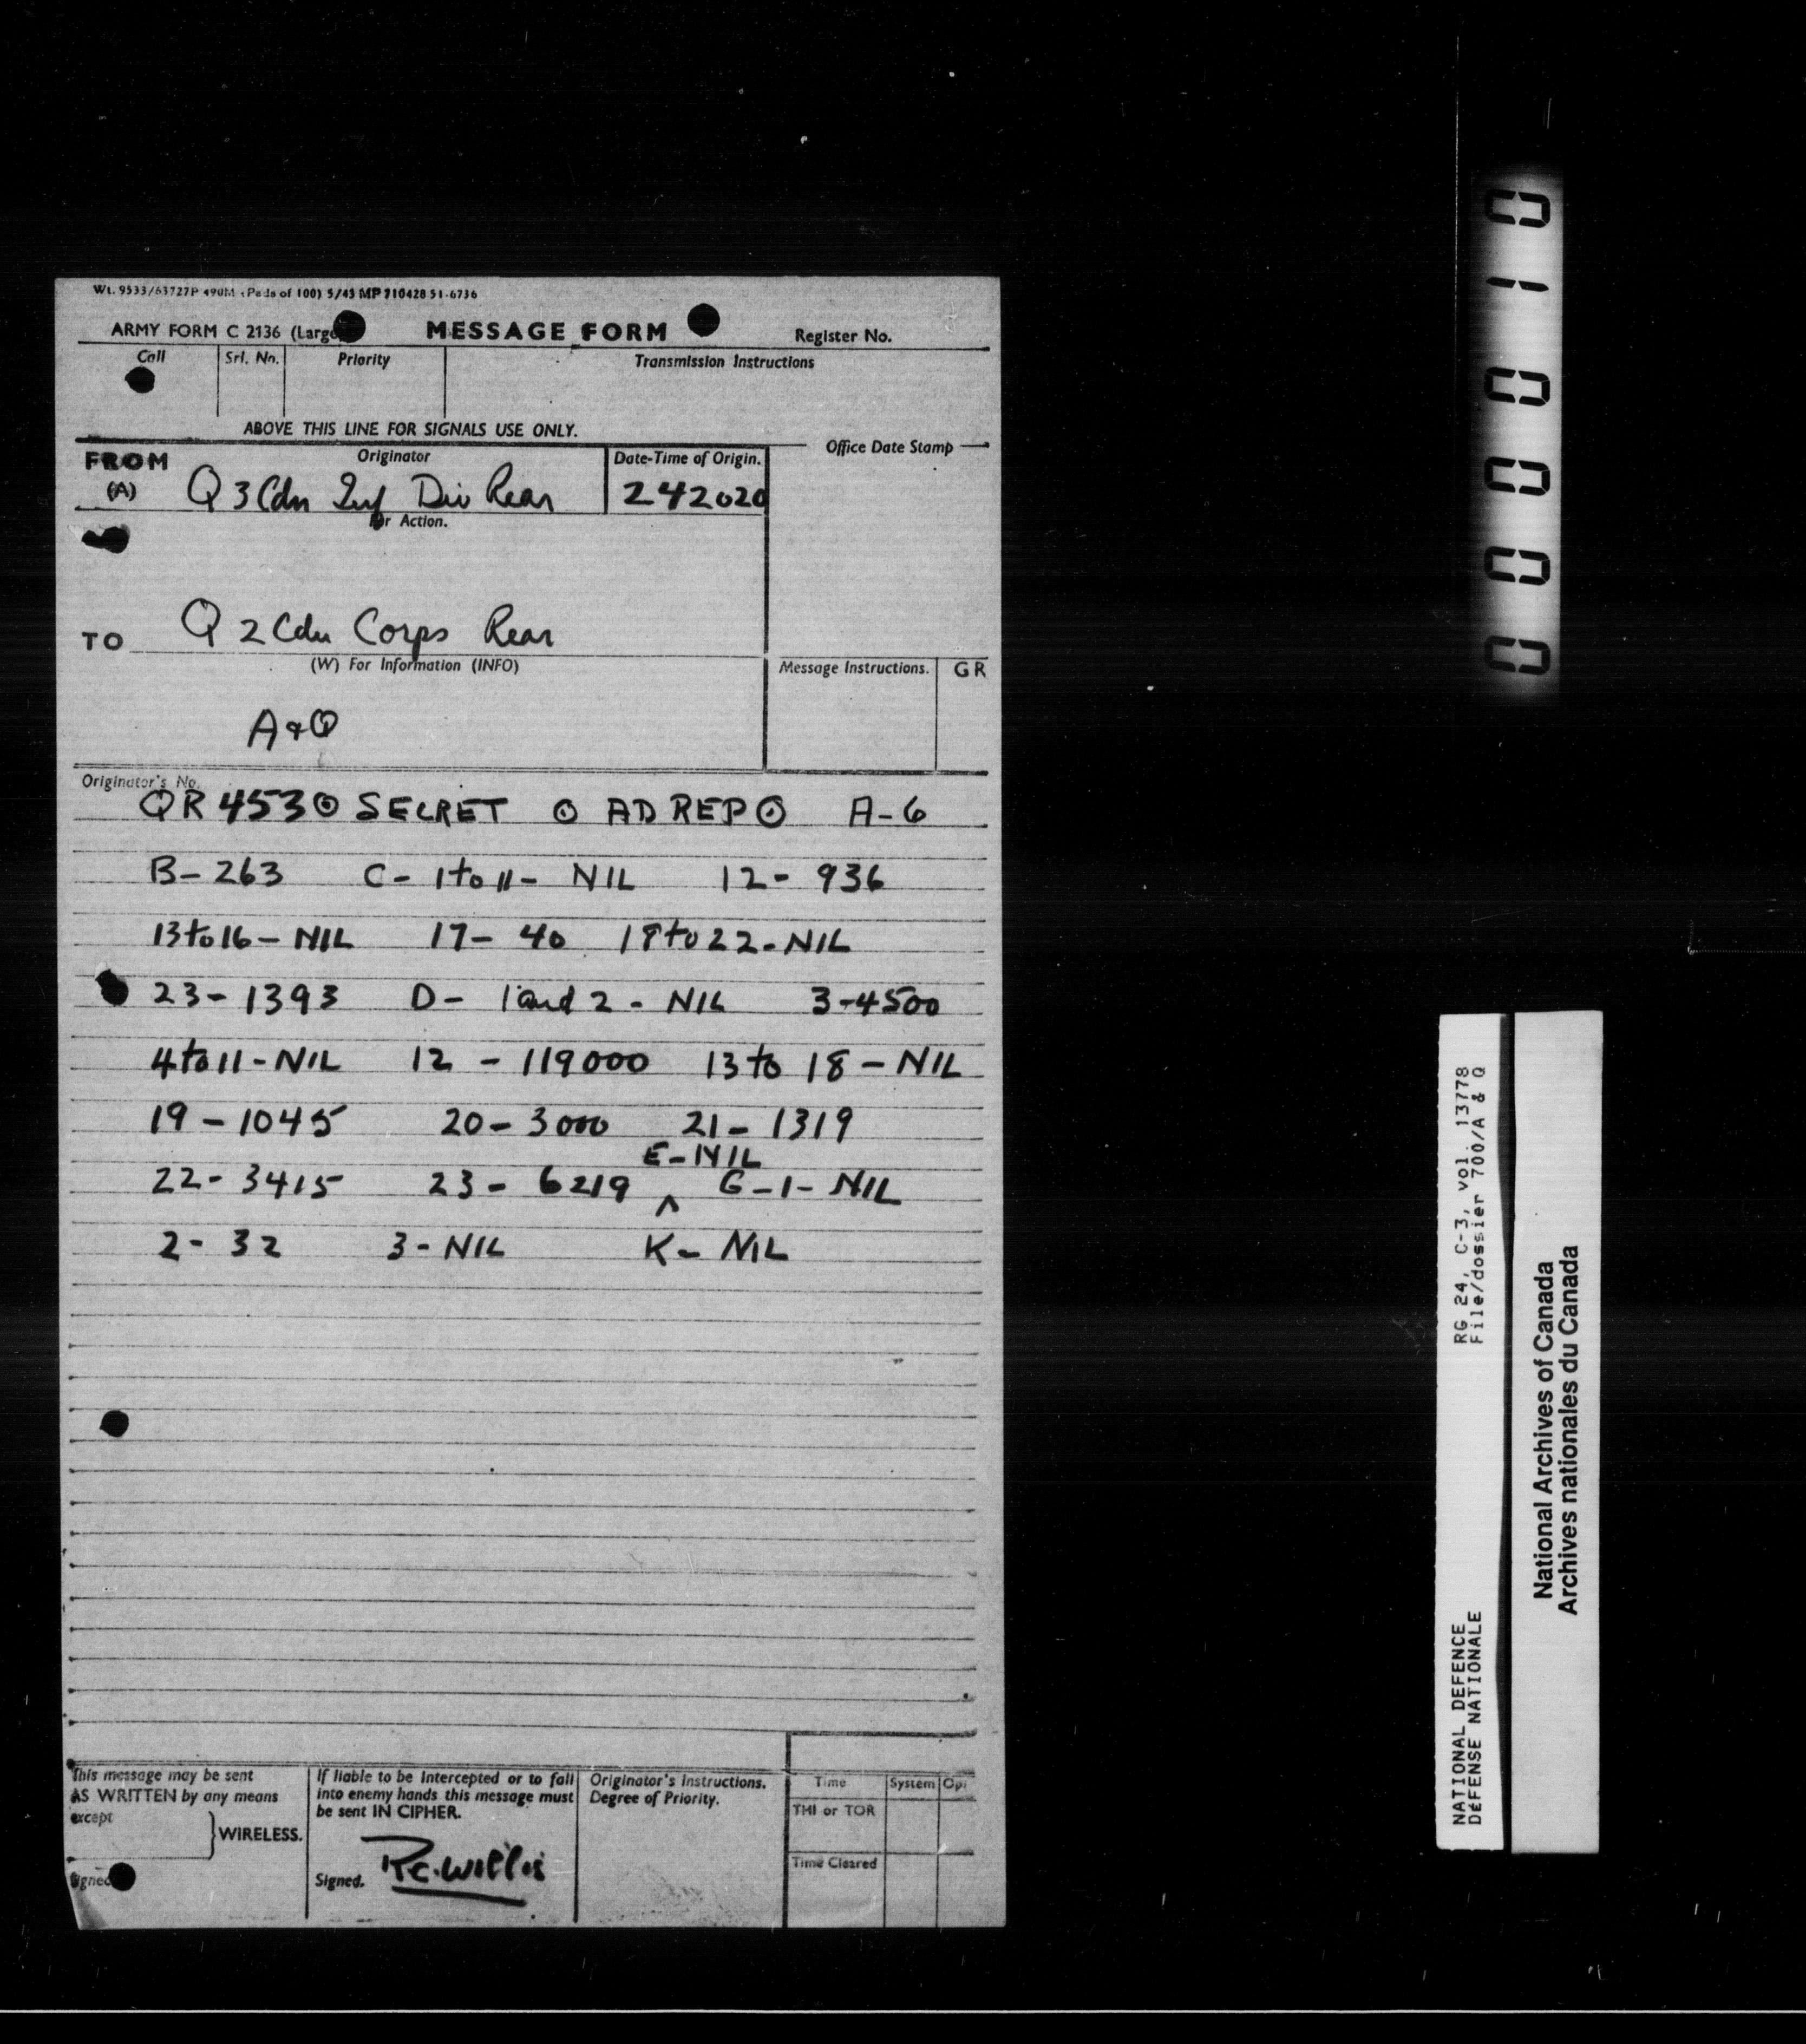 Wt. 9533/63727P 490M (Pads of 100) 5/43 MP 710428 51-6736
ARMY FORM C 2136 (Large MESSAGE FORM Register No.
Call Srl. No. Priority Transmission Instructions
ABOVE THIS LINE FOR SIGNALS USE ONLY.
FROM Originator Date-Time of Origin. Office Date Stamp
(A) Q 3 Cdn Inf Div Rear 242020
For Action.
TO Q 2 Cdn Corps Rear
(W) For Information (INFO) Message Instructions. GR
A & Q
Originator's No.
QR 453 ⊙ SECRET ⊙ AD REP ⊙ A-6
B-263 C- 1 to 11- NIL 12- 936
13 to 16 - NIL 17- 40 18 to 22 - NIL
23- 1393 D- 1 and 2 - NIL 3-4500
4 to 11 - NIL 12 - 119000 13 to 18 - NIL
19 - 1045 20 - 3000 21 - 1319
E-NIL
22- 3415 23 - 6219 ^ G-1- NIL
2- 32 3- NIL K- NIL
This message may be sent
AS WRITTEN by any means
except
WIRELESS.
Signed
If liable to be intercepted or to fall
into enemy hands this message must
be sent IN CIPHER.
Signed. R.C. Willis
Originator's Instructions.
Degree of Priority.
Time System Op.
THI or TOR
Time Cleared
0000010
RG 24, C-3, vol. 13778
File/dossier 700/A & Q
NATIONAL DEFENCE
DÉFENSE NATIONALE
National Archives of Canada
Archives nationales du Canada